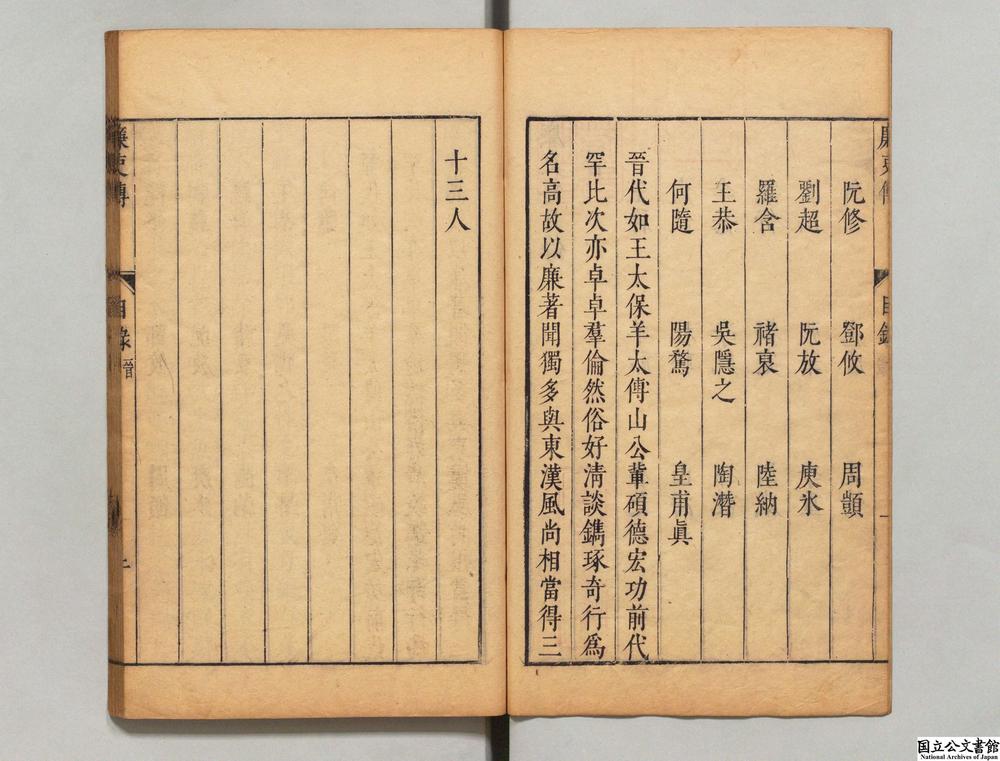 廉吏傳 目錄
阮修 鄧攸 周顗
劉超 阮放 庾氷
羅含 禇裒 陸納
王恭 吳隱之 陶潛
何隨 陽騖 皇甫眞
晉代如王太保羊太傅山公輩碩德宏功前代
罕比次亦卓卓羣倫然俗好清談鐫琢奇行爲
名高故以廉著聞獨多與東漢風尚相當得三
十三人
廉吏傳 目錄 晉
国立公文書館
National Archives of Japan